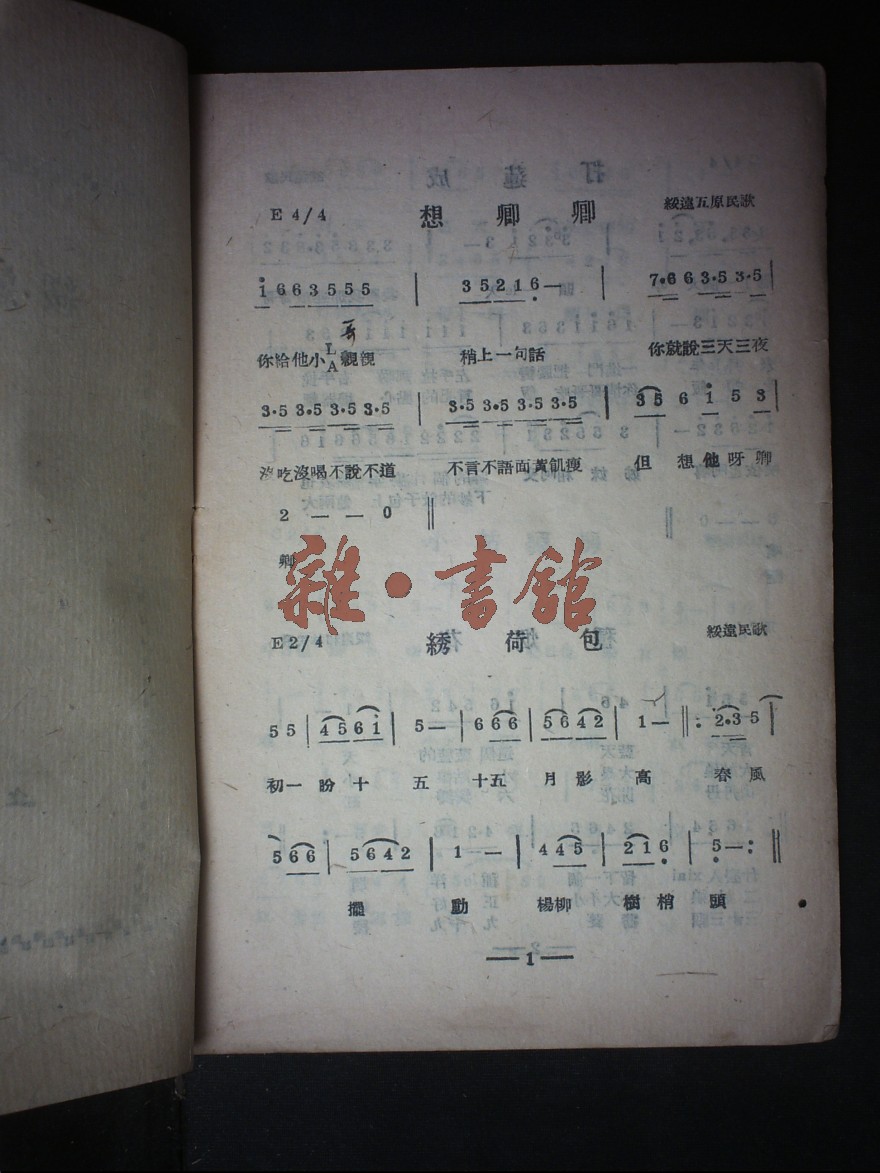 E 4/4 想卿卿 綏遠五原民歌
1 6 6 3 5 5 5 | 3 5 2 1 6 — | 7·6 6 3·5 3·5 |
你給他小LA親親 稍上一句話 你就說三天三夜
3·5 3·5 3·5 3·5 | 3·5 3·5 3·5 3·5 | 3 5 6 1 5 3 |
沒吃沒喝不說不道 不言不語面黃飢瘦 但想他呀卿
2 — — 0 ‖
卿
雜·書館
E 2/4 綉荷包 綏遠民歌
5 5 | 4 5 6 1 | 5 — | 6 6 6 | 5 6 4 2 | 1 — ‖: 2·3 5 |
初一盼十五十五月影高 春風
5 6 6 | 5 6 4 2 | 1 — | 4 4 5 | 2 1 6 | 5 — :‖
擺動楊柳樹梢頭
— 1 —